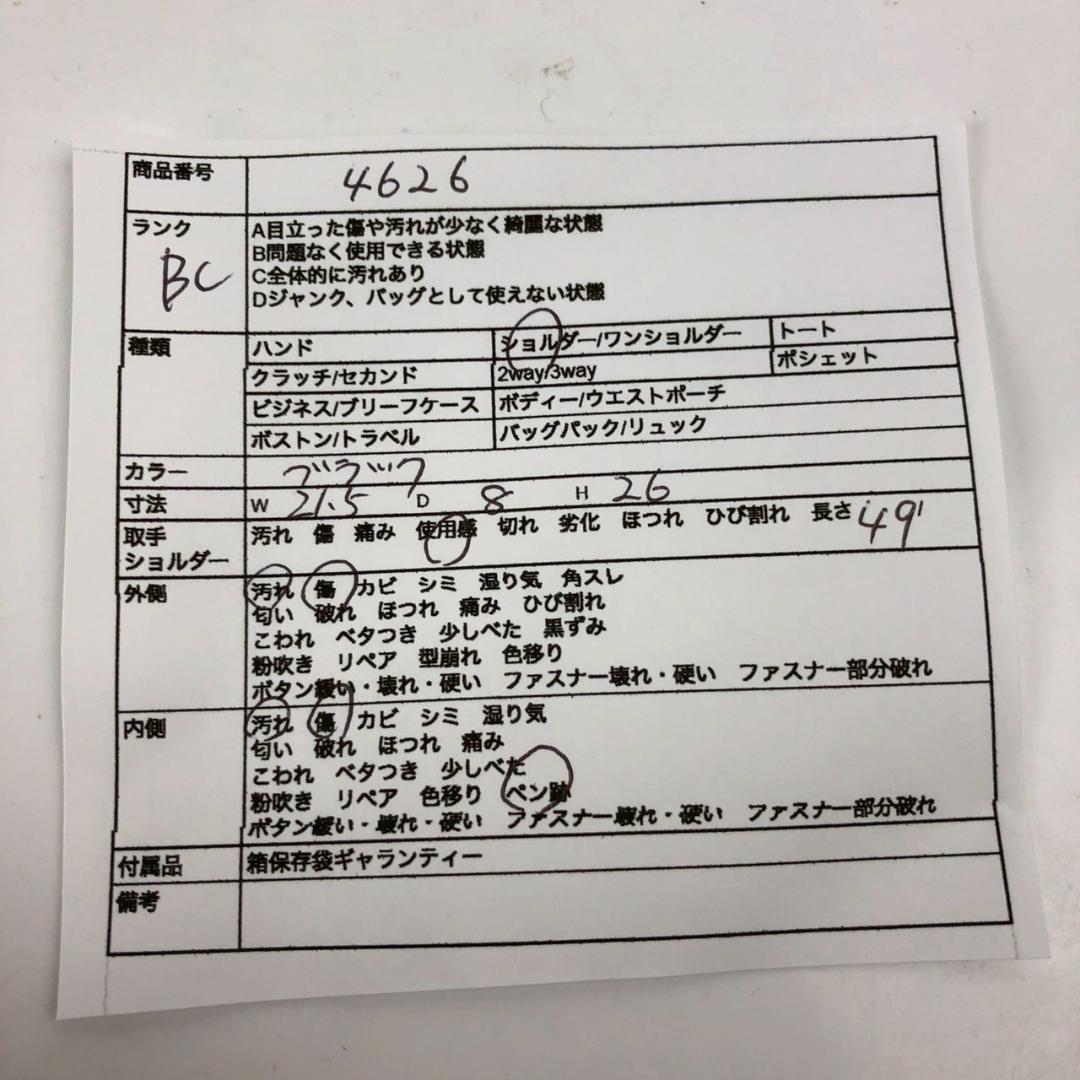 商品番号 4626
ランク BC
A目立った傷や汚れが少なく綺麗な状態
B問題なく使用できる状態
C全体的に汚れあり
Dジャンク、バッグとして使えない状態
種類 ハンド ショルダー/ワンショルダー トート
クラッチ/セカンド 2way/3way ポシェット
ビジネス/ブリーフケース ボディー/ウエストポーチ
ボストン/トラベル バッグパック/リュック
カラー ブラック
寸法 W 21.5 D 8 H 26
取手 汚れ 傷 痛み 使用感 切れ 劣化 ほつれ ひび割れ 長さ 49
ショルダー
外側 汚れ 傷 カビ シミ 湿り気 角スレ
匂い 破れ ほつれ 痛み ひび割れ
こわれ ベタつき 少しべた 黒ずみ
粉吹き リペア 型崩れ 色移り
ボタン緩い・壊れ・硬い ファスナー壊れ・硬い ファスナー部分破れ
内側 汚れ 傷 カビ シミ 湿り気
匂い 破れ ほつれ 痛み
こわれ ベタつき 少しべた
粉吹き リペア 色移り ペン跡
ボタン緩い・壊れ・硬い ファスナー壊れ・硬い ファスナー部分破れ
付属品 箱保存袋ギャランティー
備考